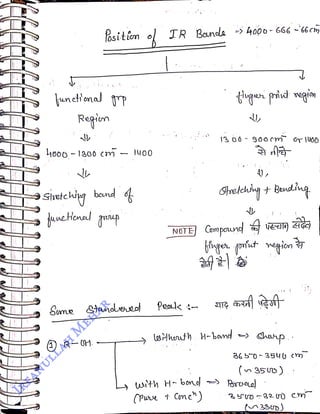 Position of IR Bands → 4000-666-66cm
functional grp
Region
finger print region
4000-1300 cm⁻ - 1400
1300-900cm⁻ or 1400
से नीचे
Stretching band of
functional group
Stretching + Bending
NOTE Compound की पहचान सदैव
finger print region से
होती है।
Some Standered Peak :- याद करनी पड़ेगी
① R-OH → Withouth H-bond → Sharp
3650-3590 cm⁻
(~3500)
→ With H-bond → Broad
(Pure + Concⁿ) 3500-3200 cm⁻
(~3300)
IRFANULLAH MEHAR